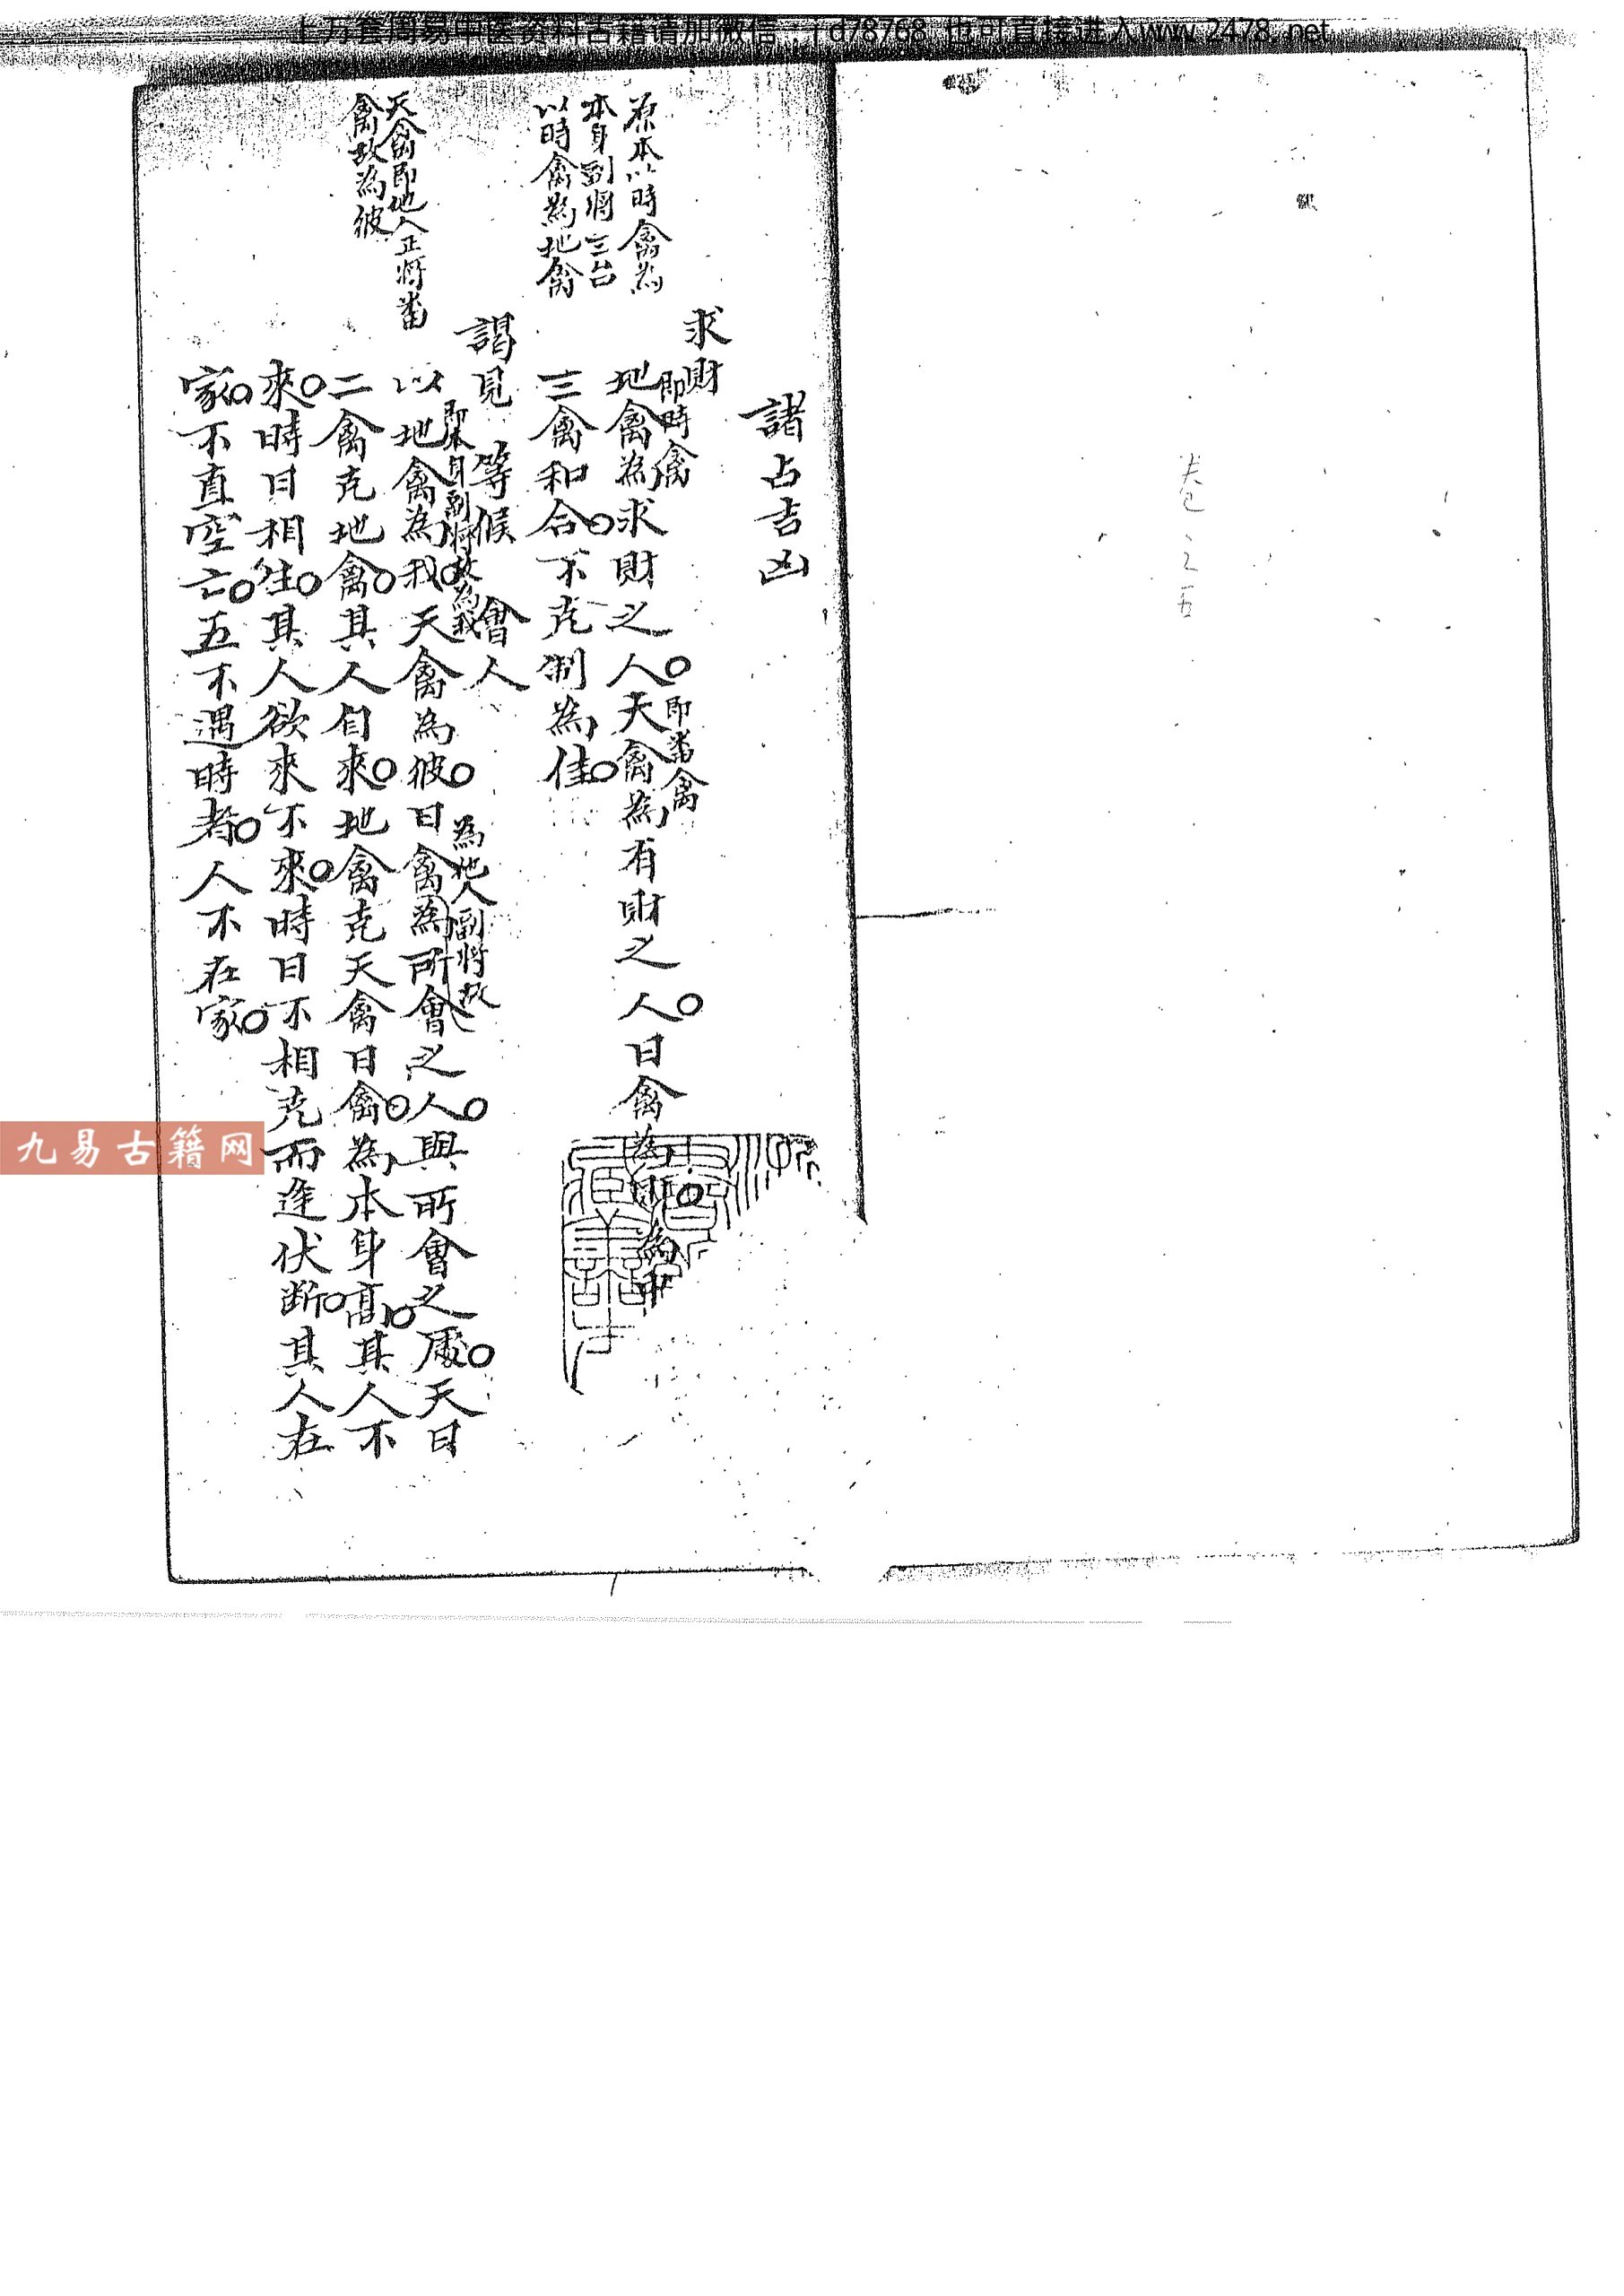 上万套周易中医资料古籍请加微信 id78768 也可直接进入www.2478.net
卷之五
諸占吉凶
求財
即時禽 即畨禽
地禽為求財之人天禽為有財之人日禽為財為中
三禽和合不克制為佳
謁見等候會人
即本身副將故為我 為他人副將故
以地禽為我天禽為彼日禽為所會之人與所會之處天日
二禽克地禽其人自來地禽克天禽日禽為本身高其人不
來時日相生其人欲來不來時日不相克而逢伏断其人在
家不直空亡五不遇時者人不在家
原本以時禽為
本身副將三台
以時禽為地禽
天禽即他人正將畨
禽故為彼
九易古籍网